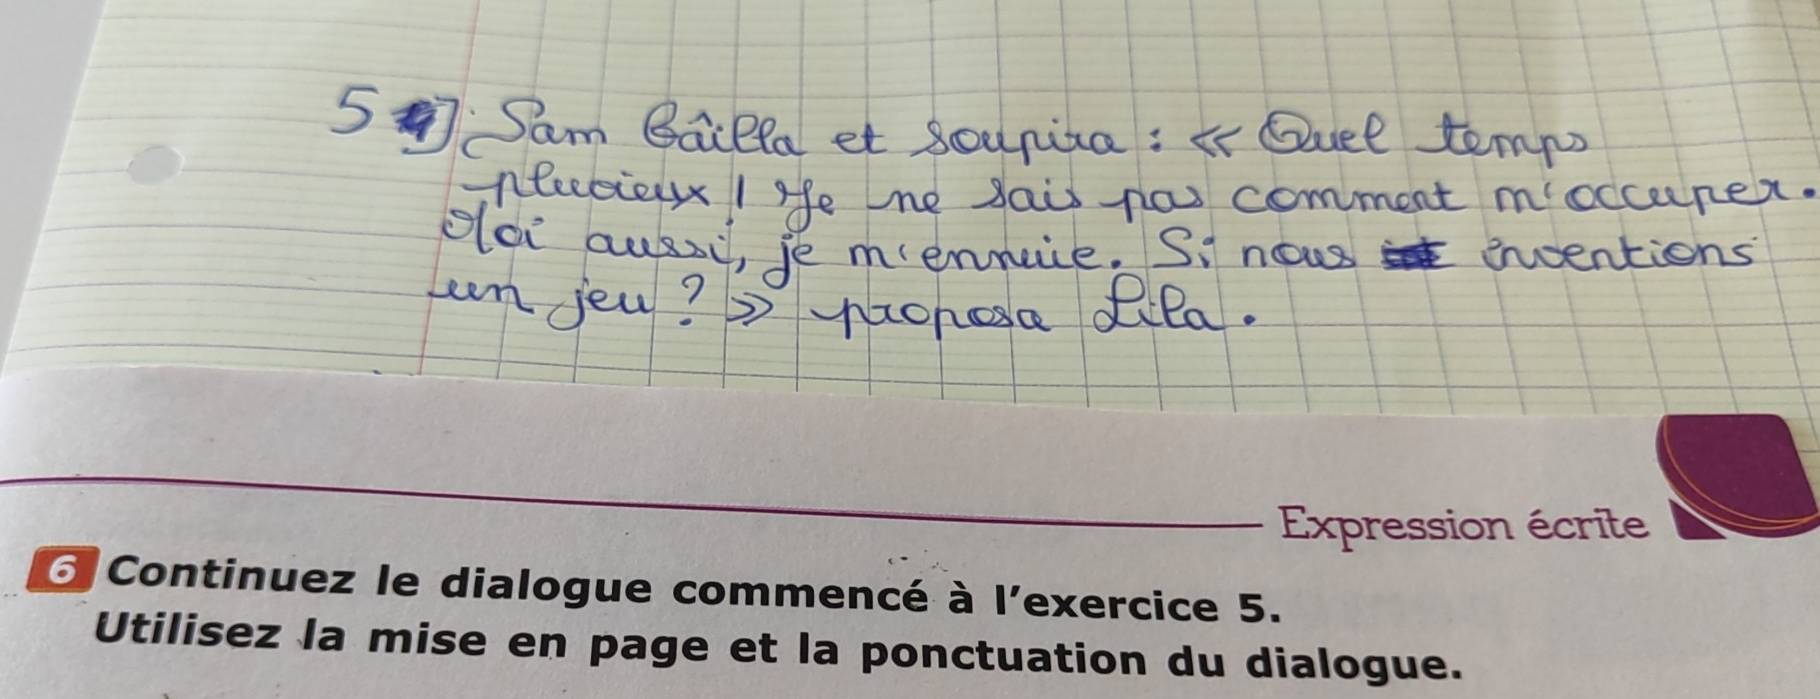 5 ]. Sam bâilla et soupira : « Quel temps
pluvieux ! Je ne sais pas comment m'occuper.
Moi aussi, je m'ennuie. Si nous inventions
un jeu ? » proposa Lila.
Expression écrite
6 Continuez le dialogue commencé à l'exercice 5.
Utilisez la mise en page et la ponctuation du dialogue.